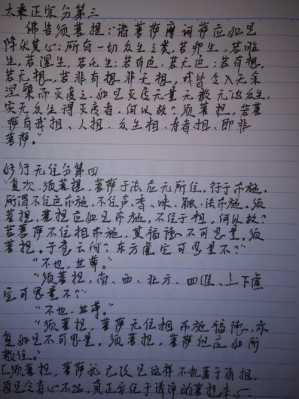 大乘正宗分第三
佛告须菩提:诸菩萨摩诃萨应如是
降伏其心:所有一切众生之类,若卵生,若胎
生,若湿生,若化生;若有色,若无色;若有想,
若无想;若非有想非无想,我皆令入无余
涅槃而灭度之。如是灭度无量无数无边众生,
实无众生得灭度者。何以故?须菩提,若菩
萨有我相、人相、众生相、寿者相,即非
菩萨。
妙行无住分第四
复次,须菩提,菩萨于法应无所住,行于布施。
所谓不住色布施,不住声、香、味、触、法布施。须
菩提,菩萨应如是布施,不住于相。何以故?
若菩萨不住相布施,其福德不可思量。须
菩提,于意云何?东方虚空可思量不?
“不也,世尊。”
“须菩提,南、西、北方、四维、上下虚
空可思量不?”
“不也,世尊。”
“须菩提,菩萨无住相布施福德,亦
复如是不可思量。须菩提,菩萨但应如所
教住。”